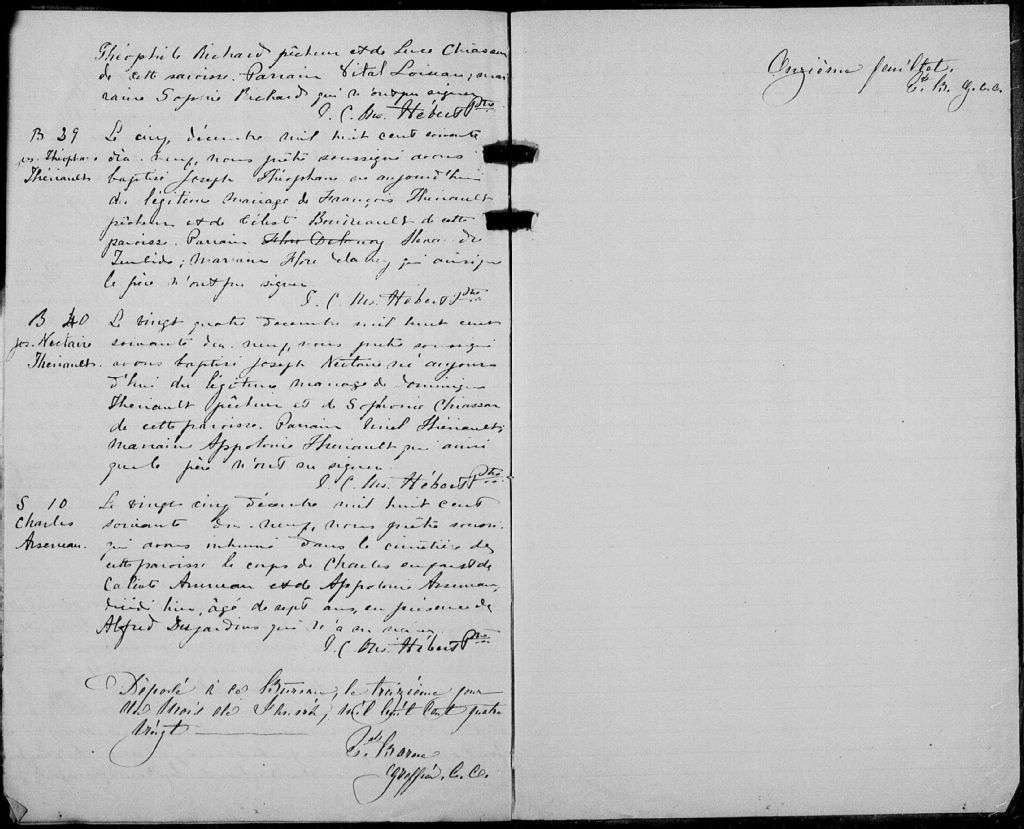 Théophile Richard pêcheur et de Luce Chiasson
de cette paroisse. Parrain Vital Loiseau; mar
raine Sophie Richard qui n'ont pu signer
J. C. Ms. Hébert Ptre
B 39
jos. Théophane
Thériault
Le cinq décembre mil huit cent soixante
dix-neuf, nous prêtre soussigné avons
baptisé Joseph Théophane né aujourd'hui
du légitime mariage de François Theriault
pêcheur et de Céleste Boudreault de cette
paroisse. Parrain
; marraine Flore qui ainsi que
le père n'ont pu signer
J. C. Ms. Hébert Ptre
B 40
jos. Nectaire
Theriault.
Le vingt quatre décembre mil huit cent
soixante dix-neuf, nous prêtre soussigné
avons baptisé Joseph Nectaire né aujour
d'hui du légitime mariage de Dominique
Theriault pêcheur et de Sophonie Chiasson
de cette paroisse. Parrain Theriault;
Marraine Appolonie Theriault qui ainsi
que le père n'ont su signer.
J. C. Ms. Hébert Ptre
S 10
Charles
Arseneau.
Le vingt cinq décembre mil huit cent
soixante dix-neuf, nous prêtre soussi-
gné avons inhumé dans le cimetière de
cette paroisse le corps de Charles enfant de
Calixte Arseneau et de Appolonie Arseneau,
décédé hier, âgé de sept ans, en présence de
Alfred Desjardins qui n'a su signer
J. C. Ms. Hébert Ptre
Déposé à ce Bureau, le treizième jour
du Mois de mil huit cent quatre
vingt
Greffier. C. C.
Onzième feuillet.
G. C. C.